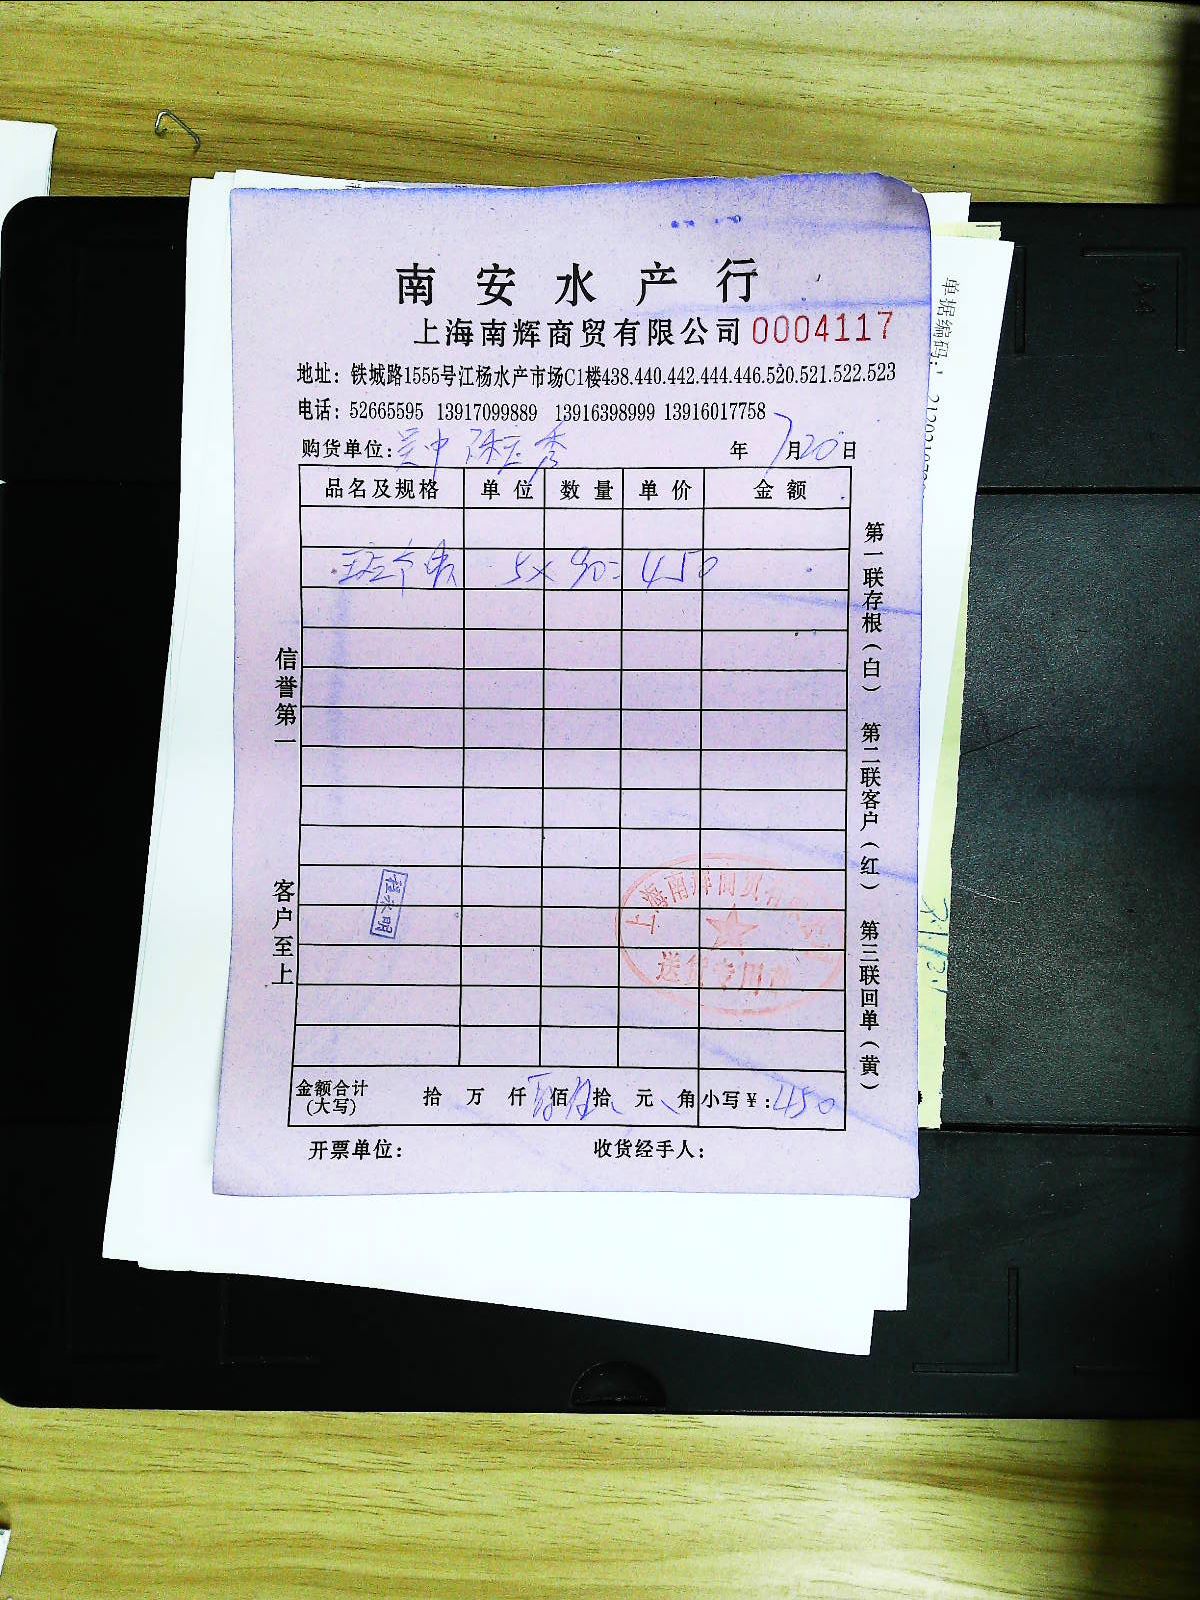 南安水产行
上海南辉商贸有限公司 0004117
地址：铁城路1555号江杨水产市场C1楼438.440.442.444.446.520.521.522.523
电话：52665595 13917099889 13916398999 13916017758
购货单位: 吴中 陈玉秀 年 7月20日
品名及规格 单位 数量 单价 金额
5×90=450
信誉第一
客户至上
第一联存根（白）
第二联客户（红）
第三联回单（黄）
程永明
上海南辉商贸有限公司
送货专用章
金额合计(大写) 拾 万 仟 肆佰 伍拾 元 角 小写￥:450
开票单位： 收货经手人：
单据编码：